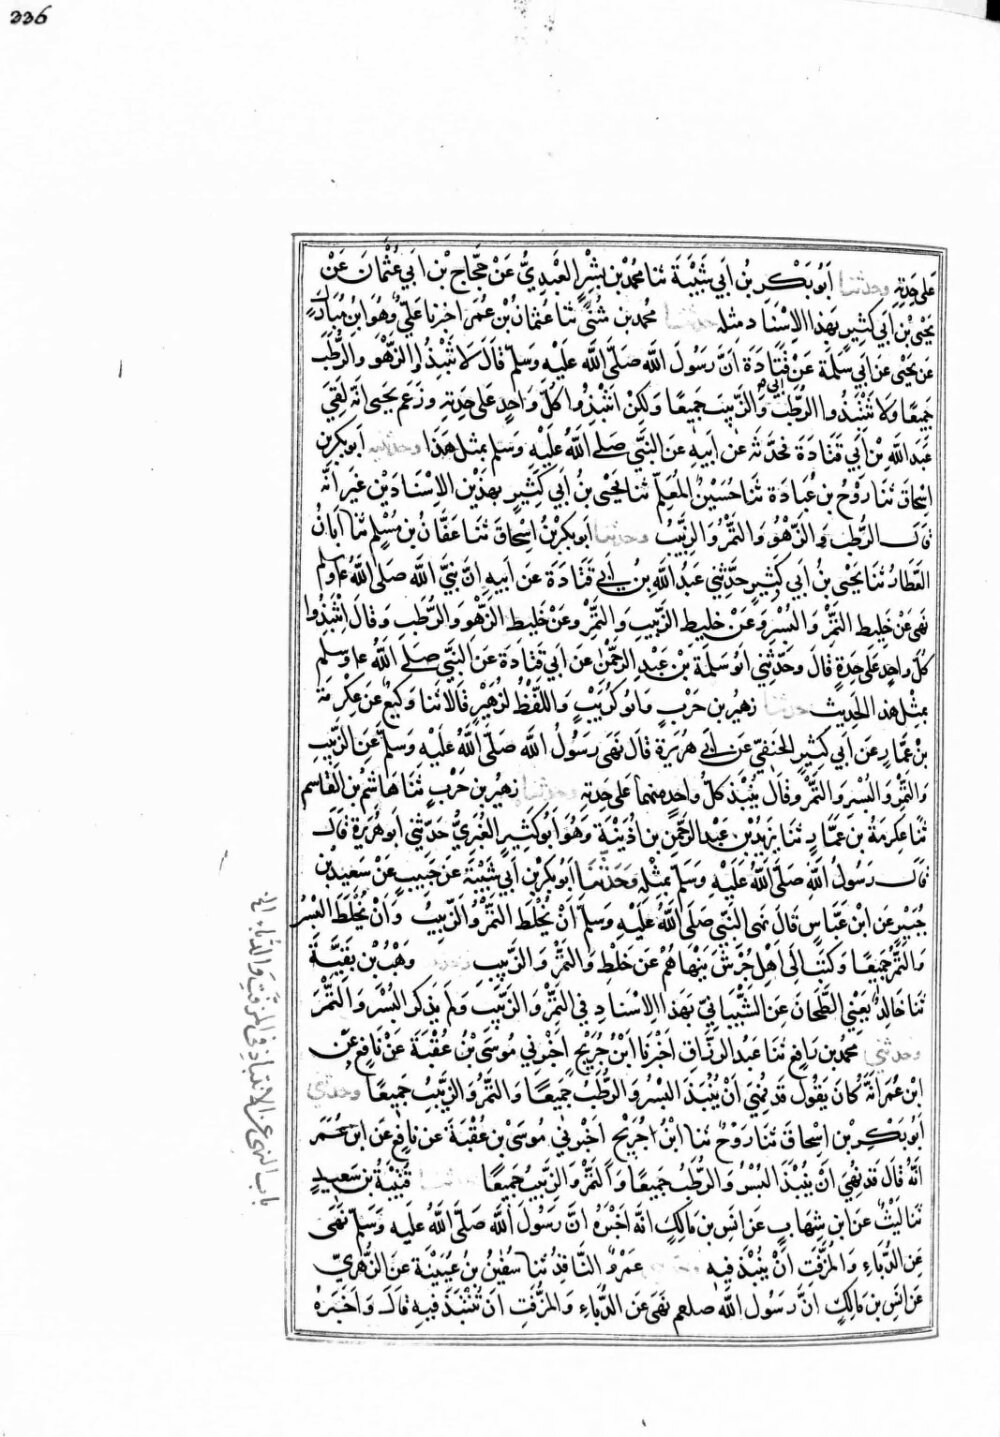 336
على حدته وحدثنا أَبُو بَكْرِ بْنُ اَبِي شَيْبَةَ ثنا محمد بْنُ بِشْرٍ العَبْدِيُّ عَنْ حَجَّاجِ بْنِ اَبِي عُثْمَانَ عَنْ
يَحْيَى بْنِ اَبِي كَثِيرٍ بِهَذا الاِسْنَادِ مثله حدثنا محمد بن مُثَنًّى ثنا عثمَانُ بْنُ عُمَرَ اخبرنا عَلِيٌّ وَهُوَ ابْنُ مُبَارَكٍ
عَن يَحْيَى عَن اَبِي سَلَمَةَ عَنْ قَتَادَةَ اَنَّ رَسُولَ اللَّه صَلَّى اللَّه عَلَيْهِ وَسَلَّم قَالَ لَا تَنْبِذُوا الزَّهْوَ وَالرُّطَبَ
جَمِيعًا وَلَا تَنْبِذُوا الرُّطَبَ وَالزَّبِيبَ جَمِيعًا وَلَكِنْ انْبِذُوا كُلَّ وَاحِدٍ عَلى حِدَتِهِ وَزَعَمَ يَحيى اَنَّه لَقِيَ
اَبِي
عَبدَ اللَّه بْنَ اَبِي قَتَادَةَ فَحَدَّثَهُ عَن اَبِيهِ عَن النَّبِي صلى اللَّه عَلَيْهِ وَسَلم بمثل هَذا وحدثنيه ابو بكر بن
اِسْحَاقَ ثَنَا رَوْحُ بن عُبَادَةَ ثَنَا حُسَيْنٌ المُعَلِّم ثَنَا يَحْيَى بْنُ اَبِي كَثِيرٍ بِهَذَيْنِ الاِسْنَادَيْنِ غَيرَ اَنَّهُ
قَالَ الرُّطَبُ وَالزَّهْوُ وَالتَّمْرُ وَالزَّبِيبُ وحدثنا ابو بكر بْنُ اِسْحَاقَ ثَنَا عَفَّانُ بنُ مُسْلِمٍ ثنا اَبَانُ
العَطَّارُ ثَنَا يَحْيَى بنُ اَبِي كَثِيرٍ حَدَّثَنِي عَبْدُ اللَّه بن اَبِي قَتَادَةَ عَن اَبِيهِ اَنَّ نَبِيَّ اللَّه صَلَى اللَّهُ ع وسلم
نَهَى عَنْ خَلِيط التَّمْرِ وَالبُسْرِ وَعَنْ خَلِيطِ الزَّبِيبِ وَالتَّمْرِ وَعَنْ خَلِيطِ الزَّهْوِ وَالرُّطَبِ وَقَالَ انْتَبِذُوا
كُلَّ وَاحِدٍ عَلى حِدَةٍ قَالَ وَحَدَّثَنِي اَبُو سَلَمَةَ بْنُ عَبْدِ الرَّحْمَنِ عَنْ اَبِي قَتَادَةَ عَنَ النَّبِيِّ صَلَى اللَّهُ ع وسلم
بِمِثْلِ هَذَا الحَدِيثِ حدثنا زهَيْرُ بن حَرْبٍ وَابُو كُرَيْبٍ وَاللَّفْظُ لِزُهَيْرٍ قَالَا ثَنَا وَكِيعٌ عَنْ عِكْرِمَةَ
بْنِ عَمَّارٍ عَن اَبِي كَثِيرٍ الحَنَفِيِّ عَن اَبِي هُرَيرَةَ قَالَ نَهَى رَسُولُ اللَّه صَلَّى اللَّهُ عَلَيْهِ وَسَلَّم عَنِ الزَّبِيبِ
وَالتَّمْرِ وَالبُسْرِ وَالتَّمْرِ وَقَالَ يُنْبَذُ كلُّ وَاحِدٍ مِنْهمَا عَلَى حِدَتِه وحدثنا زهَيْرُ بن حَرْبٍ ثَنَا هَاشِمُ بْنُ القَاسِم
ثَنَا عِكرِمَةُ بن عَمَّارٍ ثنَا يَزِيدُ بْنُ عَبْدِ الرَّحْمَنِ بن اُذَيْنَةَ وَهُوَ اَبُو كَثِيرٍ الغُبَرِيُّ حَدَّثَنِي اَبُو هُرَيْرَةَ قَالَ
قَالَ رَسُولُ اللَّهِ صَلَى اللَّهُ عَلَيْهِ وَسَلَّمَ بمِثْلِهِ وَحَدَّثَنَا اَبُو بكْرِ بْنُ اَبِي شَيْبَةَ عَنْ حَبِيبٍ عَنْ سَعِيدِ بْنِ
جُبَيْرٍ عَن ابْن عَبَّاسٍ قَالَ نَهَى النَّبِي صَلَى اللَّهُ عَلَيْهِ وَسَلَّم اَنْ يُخْلَطَ التَّمْرُ وَالزَّبِيبُ وَاَنْ يُخْلَطَ البُسْرُ
وَالتَّمْرُ جَمِيعًا وَكَتَبَ اِلَى اَهْلِ جُرَشَ يَنْهَاهُمْ عَن خَلْطِ وَالتَّمْرِ وَالزَّبِيبِ وحدثنيه وَهْبُ بْنُ بَقِيَّةَ
ثَنَا خَالِدٌ يَعْنِي الطَّحَّانَ عَنِ الشَّيْبَانِيِّ بِهَذا الاِسْنَادِ فِي التَّمْرِ وَالزَّبِيبِ وَلَم يَذكر البُسْرَ وَالتَّمْرَ
وحدثني محمد بن رَافِعٍ ثَنَا عَبدُ الرَّزَّاقِ اَخْبَرَنَا ابْنُ جُرَيْجٍ اخْبَرَنِي مُوسَى بْنُ عُقْبَةَ عَنْ نَافِعٍ عَنْ
ابْنِ عُمَرَ اَنَّهُ كَانَ يَقُولُ قَد نُهِيَ اَنْ يُنْبَذَ البُسْرُ وَالرُّطَبُ جَمِيعًا وَالتَّمْرُ وَالزَّبِيبُ جَمِيعًا وحدثني
اَبُو بَكْرِ بْن اِسْحَاقَ ثَنَا رَوْحٌ ثنَا ابْنُ جُرَيْجٍ اَخْبَرَنِي مُوسَى بْن عُقْبَةَ عَن نَافِعٍ عَن ابْنِ عُمَر
اَنَّهُ قَالَ قَد نُهِيَ اَنْ يُنْبَذَ البُسْرُ وَالرُّطَبُ جَمِيعًا وَالتَّمْرُ وَالزَّبِيبُ جَمِيعًا حدثنا قُتَيْبَةُ بن سَعِيدٍ
ثَنَا لَيْثٌ عَن ابن شِهَابٍ عَن اَنَس بن مَالِكٍ اَنَّه اَخْبَرَهُ اَنَّ رَسُولَ اللَّه صَلَّى اللَّهُ عَلَيهِ وَسَلَّمَ نَهَى
عَنِ الدُّبَّاءِ وَالمُزَفَّتِ اَنْ يُنْبَذَ فِيهِ وحدثني عَمْرٌو النَّاقِدُ ثنا سُفْيٰنُ بن عُيَيْنَةَ عَنَ الزُّهْرِيِّ
عَن اَنَسِ بن مَالِكٍ اَنَّ رَسُولَ اللَّه صلعم نَهَى عَنَ الدُّبَّاءِ وَالمُزَفَّتِ اَن تُنْتَبَذَ فِيهِ قَالَ وَاَخبَرَهُ
باب النهي عن الانتباذ في المزفت والدباء الخ